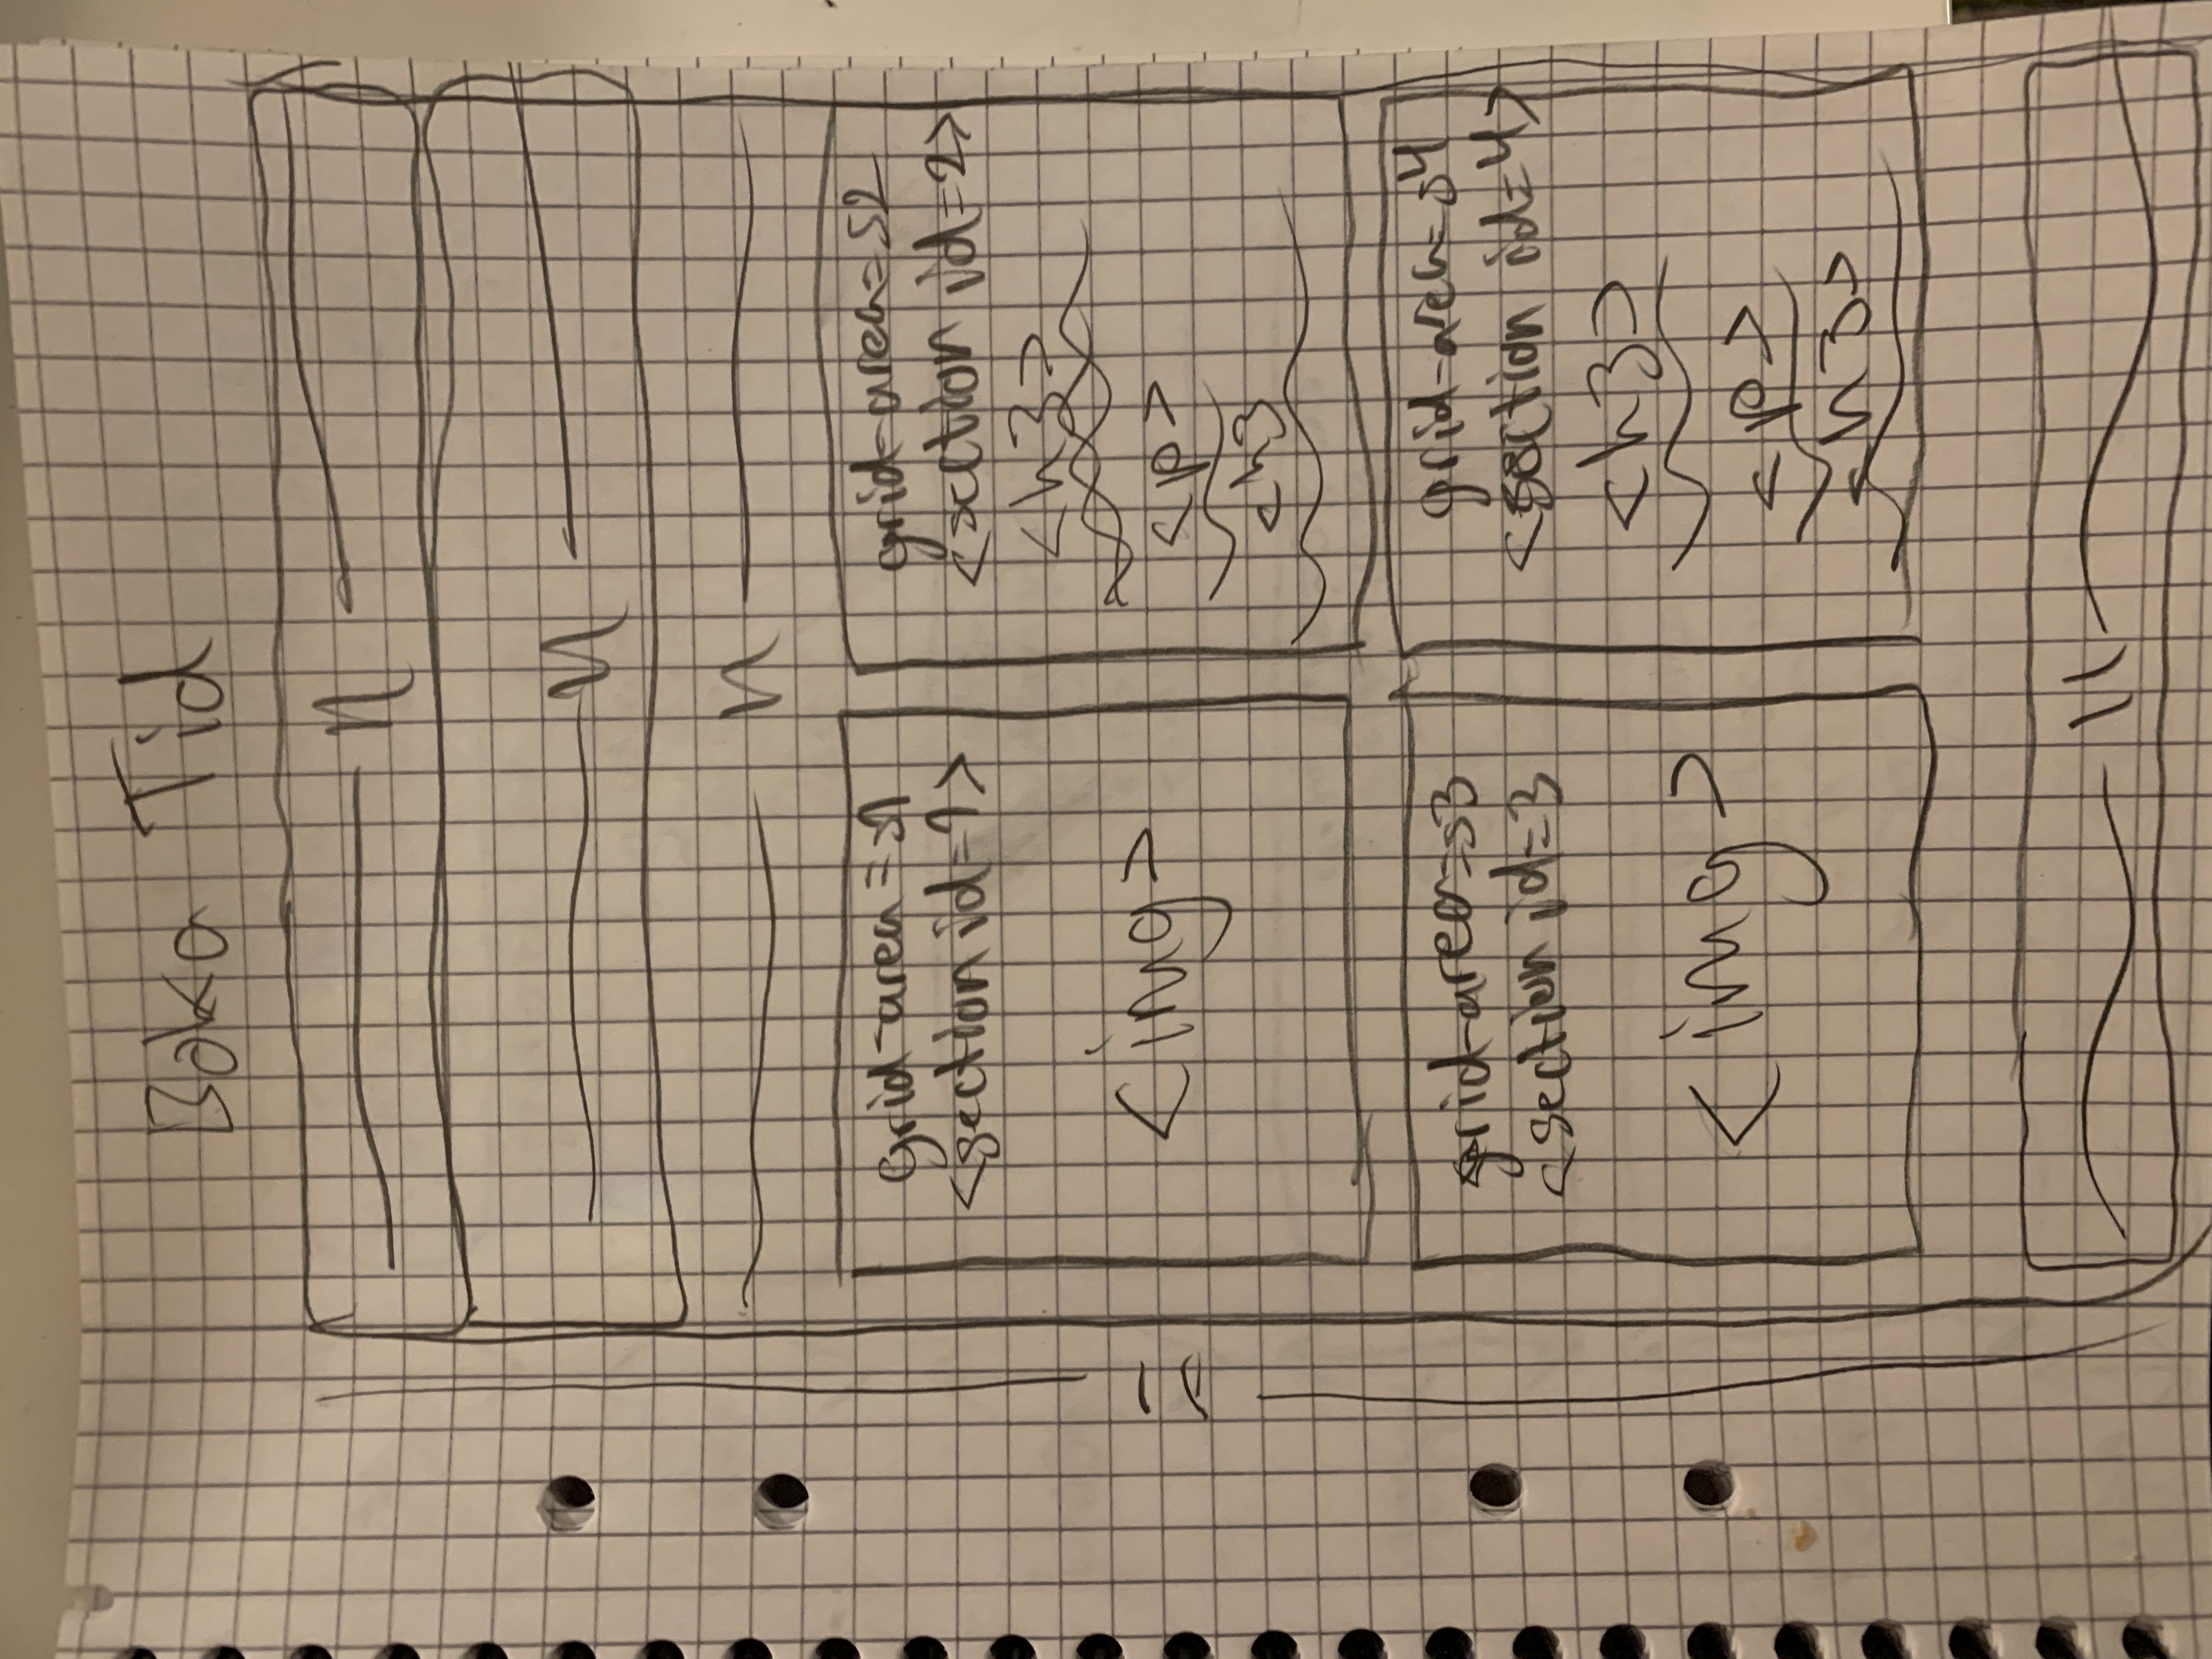 Boka Tid
—— 11 ——
—— 11 ——
—— 11 ——
grid-area=s1
<section id=1>
<img>
grid-area=s2
<section id=2>
<h3>
<p>
<h3
—— 11 ——
grid-area=s3
<section id=3
<img>
grid-area=s4
<section id=4>
<h3>
<p>
<h3>
—— 11 ——